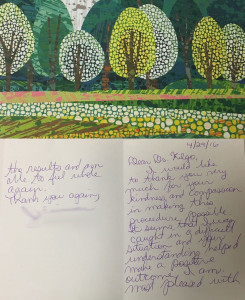 4/24/16
Dear Dr. Kilgo,
I would like
to thank you very
much for your
kindness and compassion
in making this
procedure possible
caught in a difficult
situation and your
understanding helped
make a positive
outcome. I am
most pleased with
the results and am
able to feel whole
again.
Thank you again,